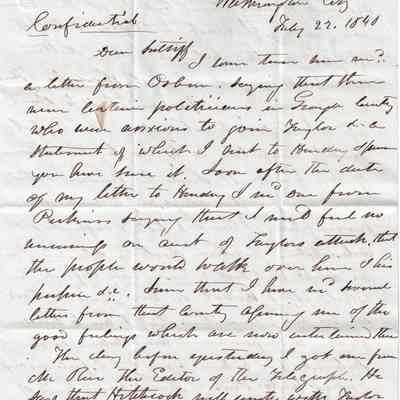 Washington City
Confidential July 22. 1840
Dear Sutliff
I some time since rec'd
a letter from Osborn, saying that there
were certain politicians in Geauga County
who were anxious to join Taylor &c a
Statement of which I sent to Hendry I presume
you have seen it. Soon after the date
of my letter to Hendry I rec'd one from
Perkins saying that I need feel no
uneasiness on acct of Taylors attack, that
the people would walk over him & his
paper &c. Since that I have rec'd several
letters from that County assuring me of the
good feelings which are now entertained there
The day before yesterday I got one from
Mr Rice the Editor of the Telegraph. He
says that Hitchcock will unite with Taylor